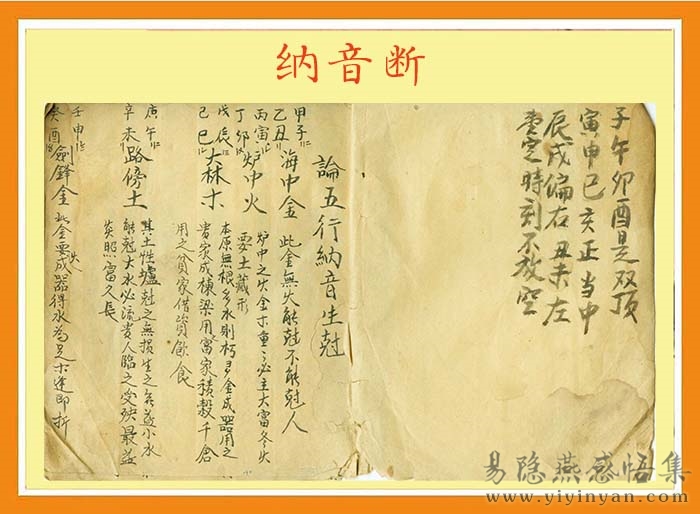 纳音断
子午卯酉是双顶
寅申巳亥正当中
辰戌偏右丑未左
定時刻不放空
論五行納音生尅
甲子
乙丑 海中金 此金無火能尅不能尅人
丙寅
丁卯 炉中火 炉中之火金木重〻必主大富冬火
要土藏形
戊辰
己巳 大林木 本原無根多水則朽 金成器用之
貴家成棟梁用富家積穀千倉
用之貧家借資飲食
庚午
辛未 路傍土 其土性墟尅之無損生之無益小水
能尅大水必流貴人臨之受殃最益
英照富久長
壬申
癸酉 劍鋒金 此金要火成器得水為足木逢即折
易隐燕感悟集
www.yiyinyan.com